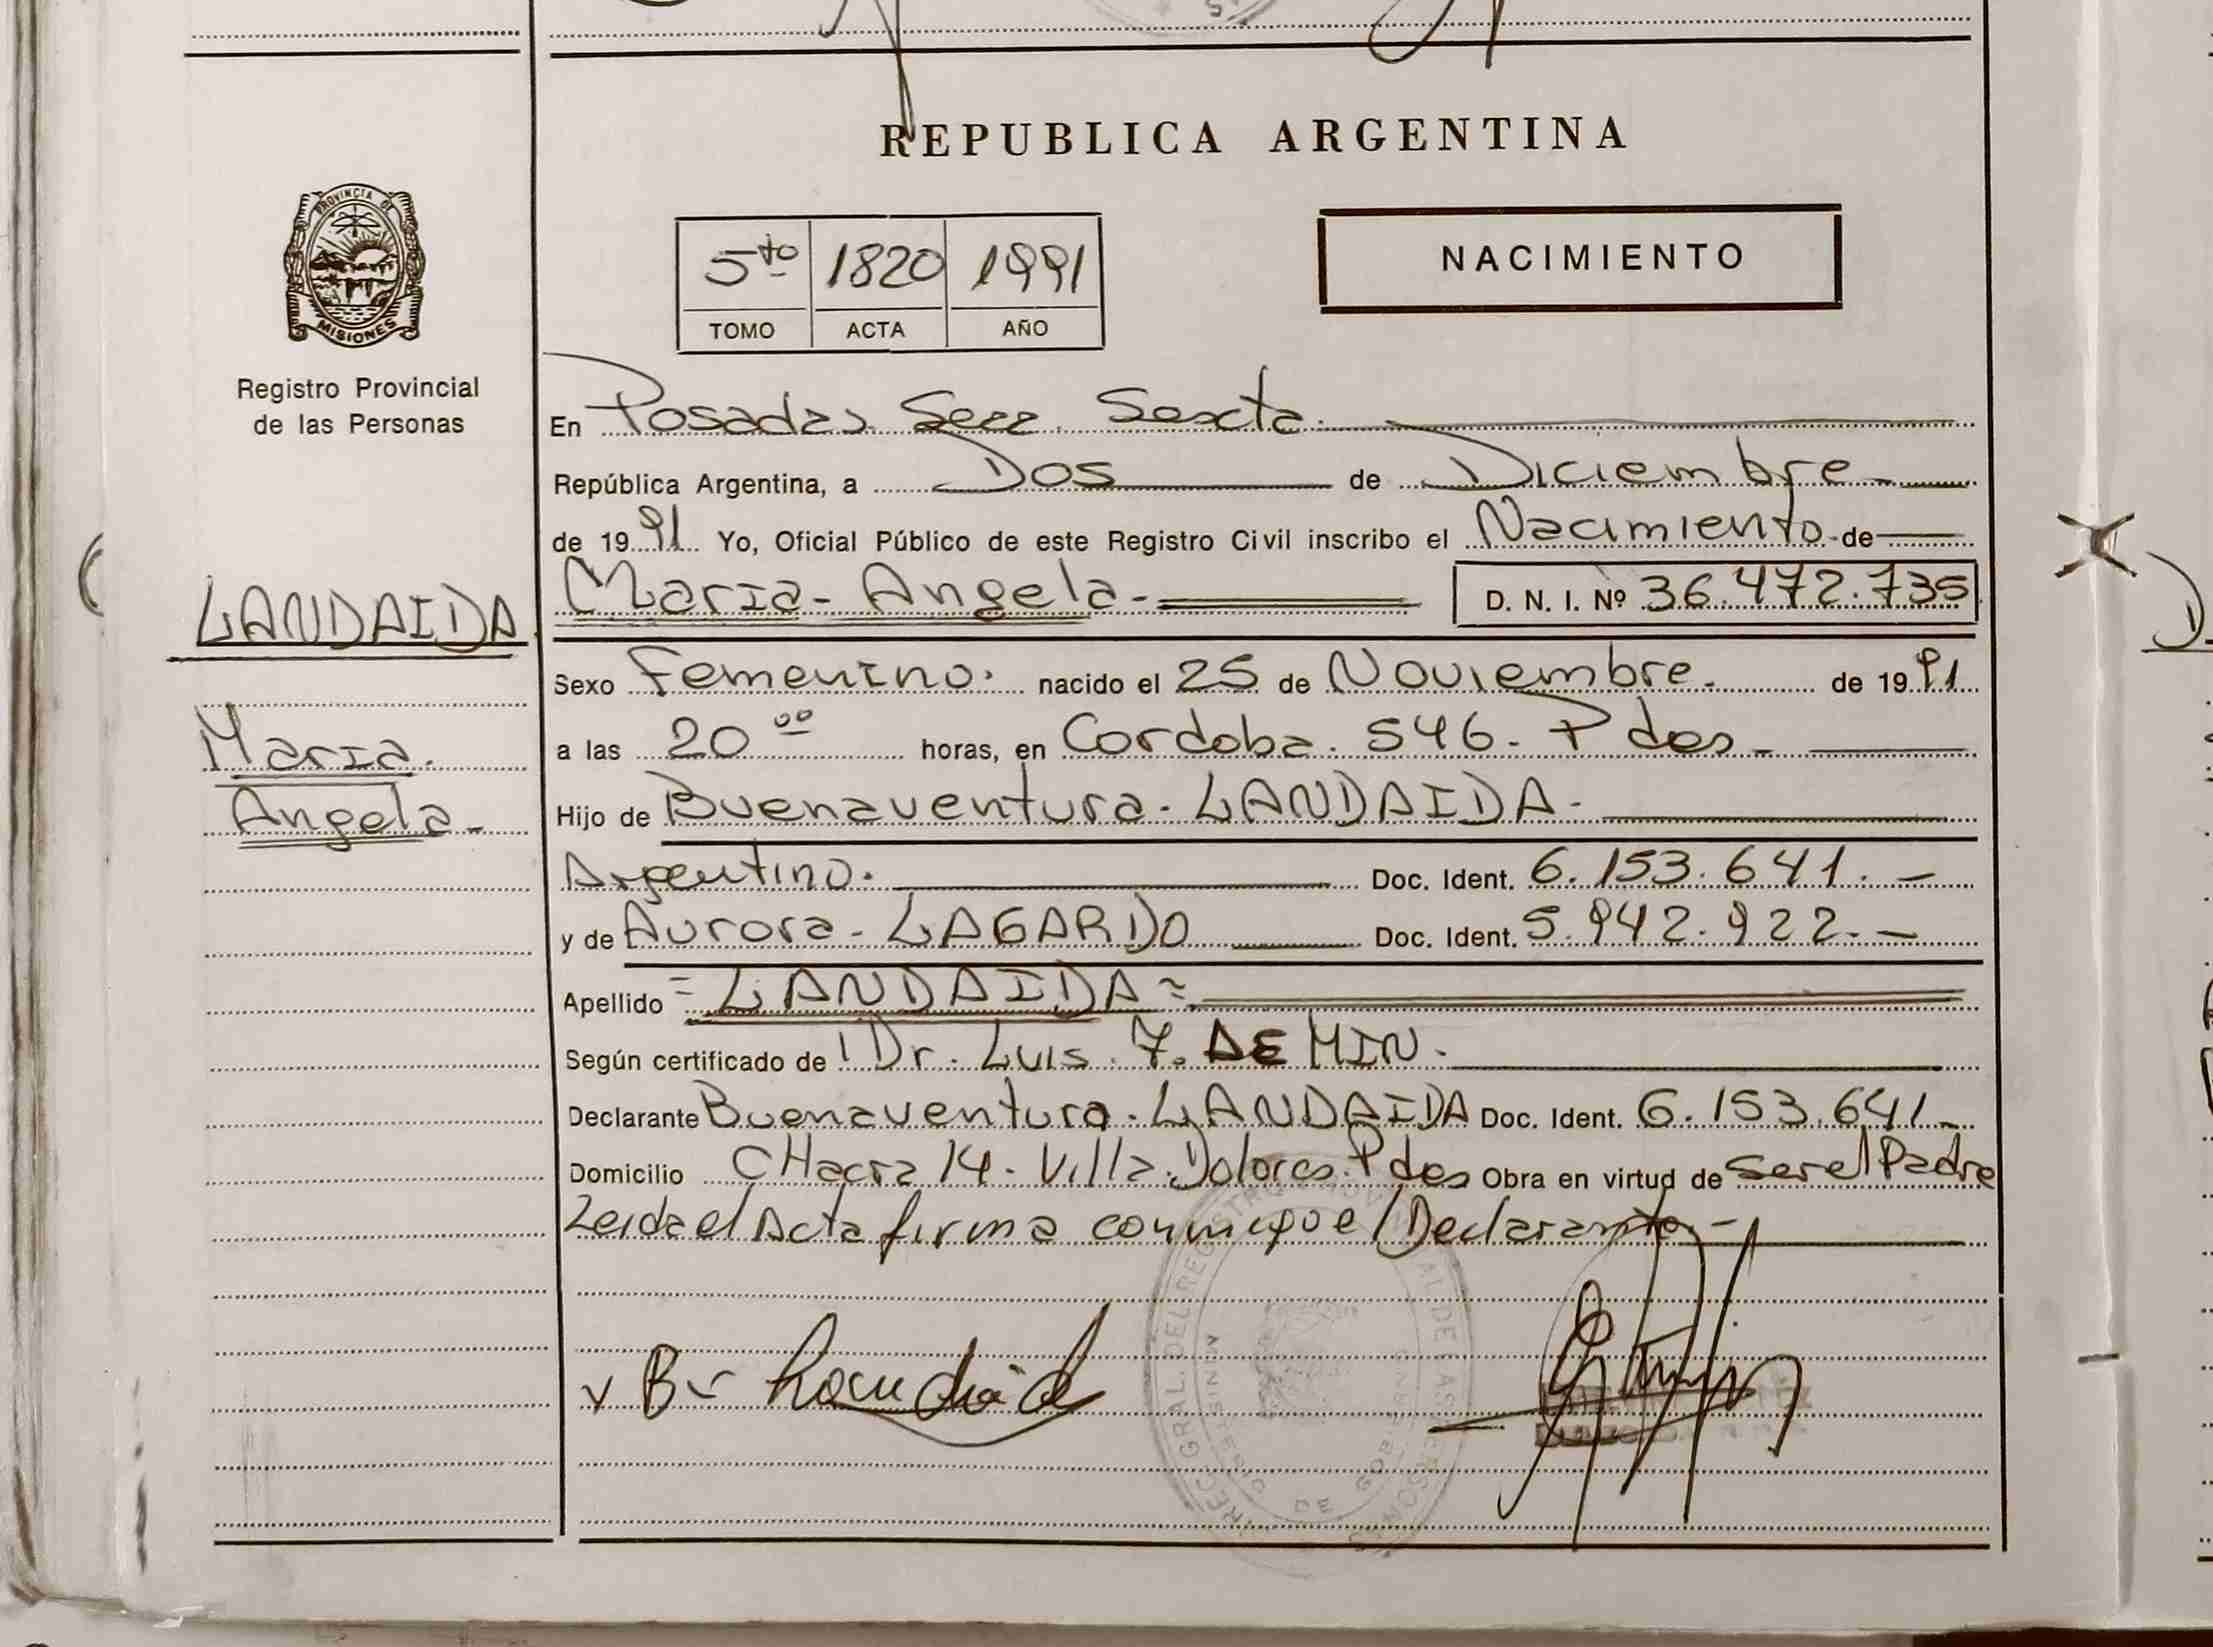 REPUBLICA ARGENTINA
PROVINCIA DE
MISIONES
Registro Provincial
de las Personas
5to 1820 1991
TOMO ACTA AÑO
NACIMIENTO
En Posadas Secc. Sexta.
República Argentina, a Dos de Diciembre
de 1991 Yo, Oficial Público de este Registro Civil inscribo el Nacimiento de
LANDAIDA
Maria Angela D. N. I. Nº 36.472.735
Sexo Femenino. nacido el 25 de Noviembre. de 1991
Maria.
a las 20 00 horas, en Cordoba. 546. Pdas
Angela
Hijo de Buenaventura LANDAIDA
Argentino. Doc. Ident. 6.153.641.
y de Aurora LAGARDO Doc. Ident. 5.942.922.
Apellido = LANDAIDA =
Según certificado de Dr. Luis. DE MIN.
Declarante Buenaventura. LANDAIDA Doc. Ident. 6.153.641
Domicilio CHacra 14. Villa Dolores. Pdas Obra en virtud de ser el Padre
Leida el Acta firma conmigo el Declarante